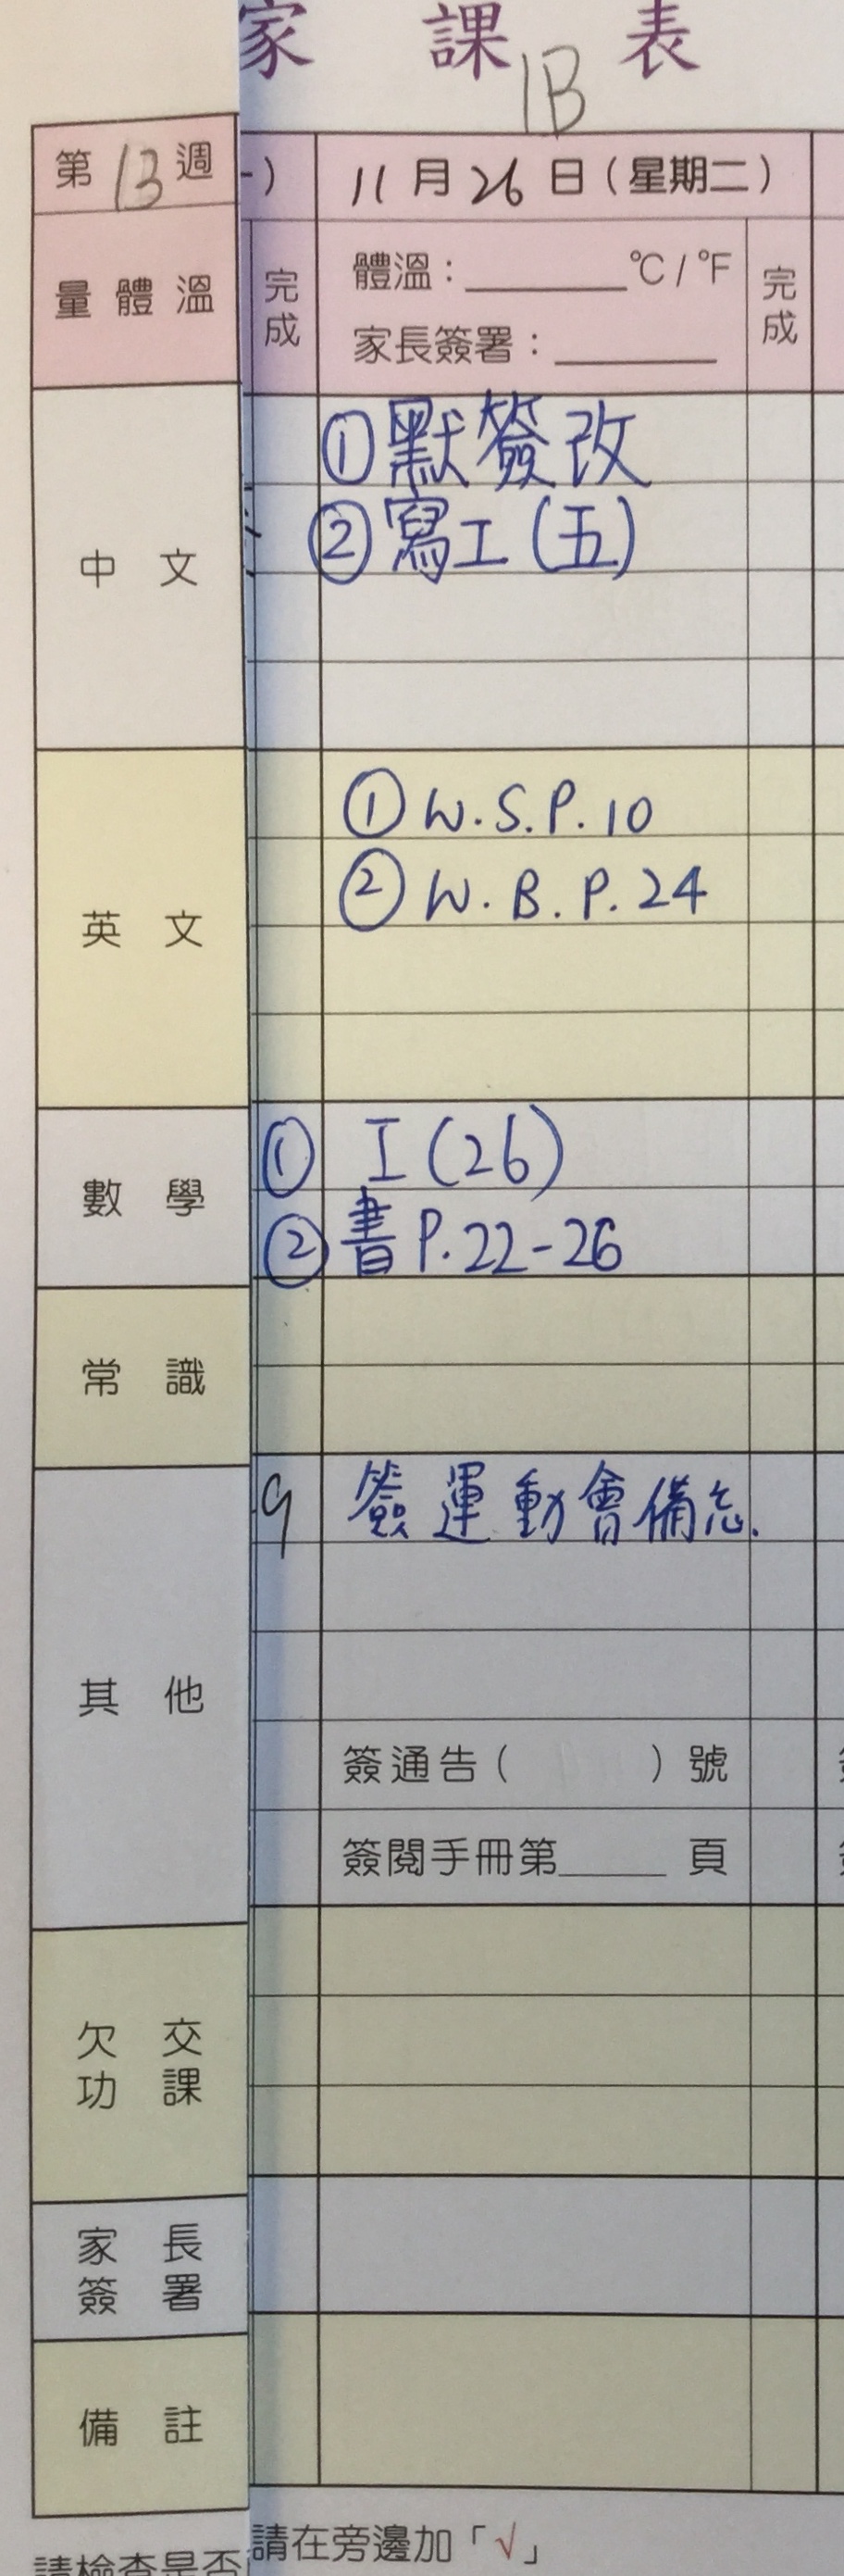 家課表
1B
第13週
-)
11月26日(星期二)
量體溫
完成
體溫:______°C/°F
家長簽署:______
完成
中文
①默簽改
②寫工(五)
英文
①W.S.P.10
②W.B.P.24
數學
①工(26)
②書P.22-26
常識
其他
9
簽運動會備忘.
簽通告( )號
簽閱手冊第____頁
欠交功課
家長簽署
備註
請檢查是否
請在旁邊加「√」